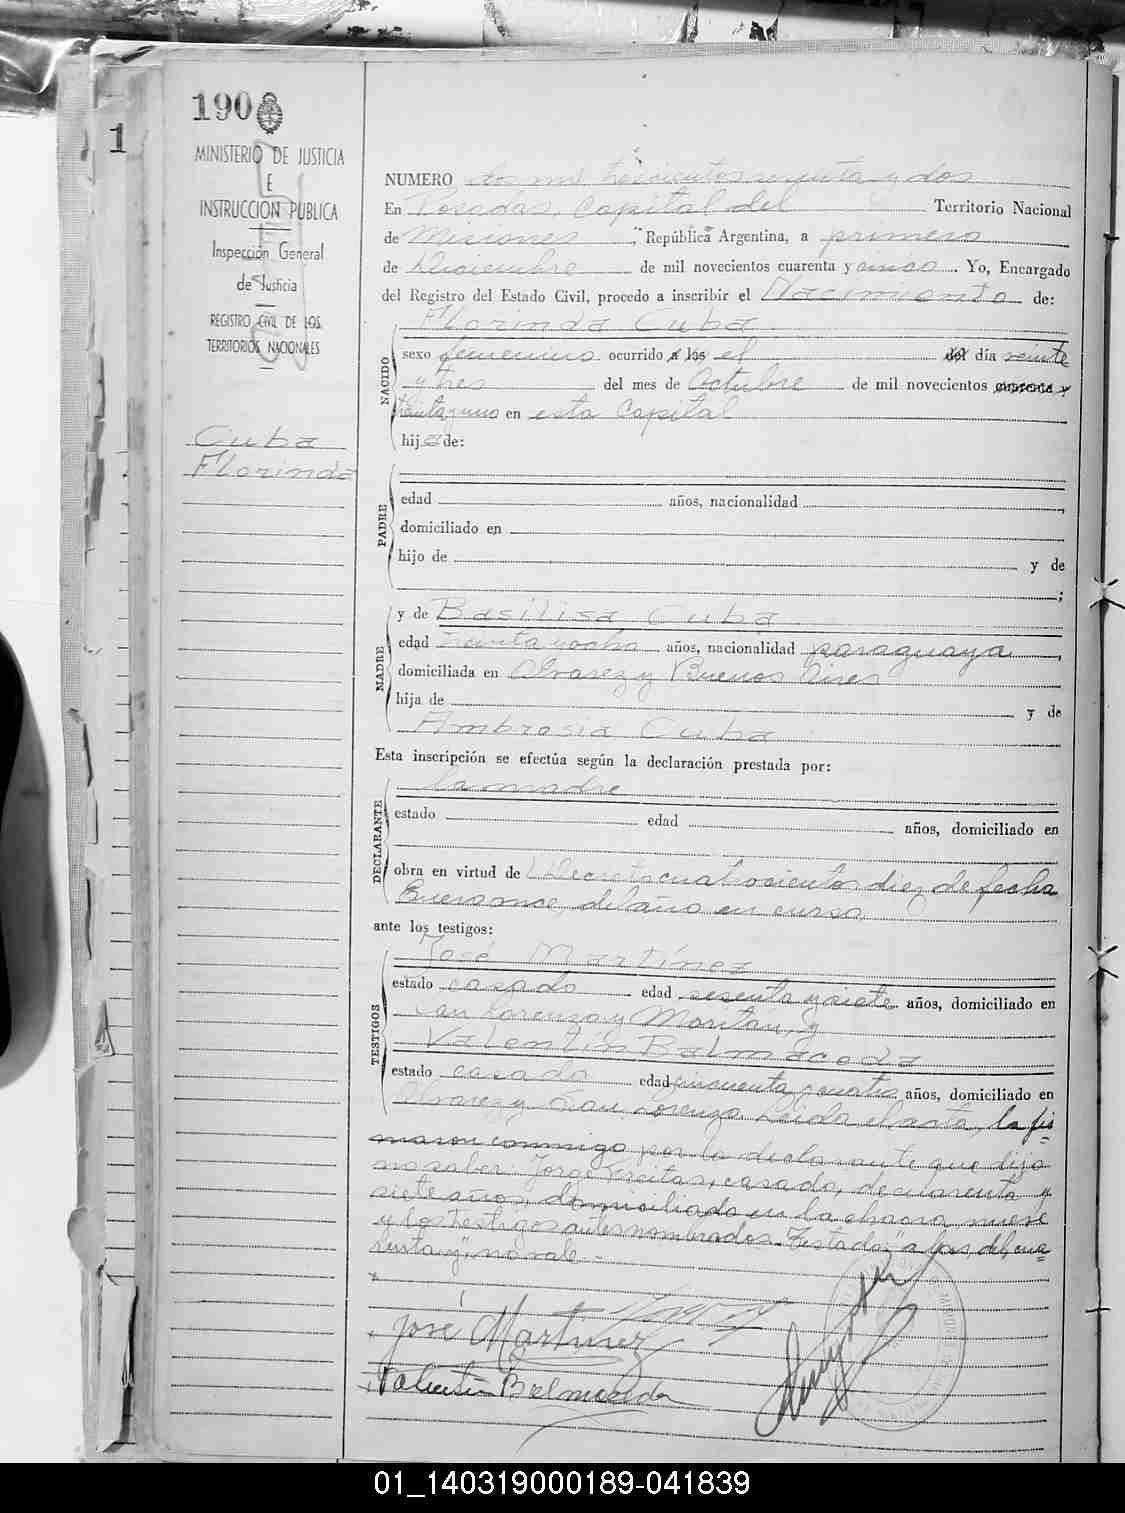 190
1
MINISTERIO DE JUSTICIA
E
INSTRUCCION PUBLICA
Inspección General
de Justicia
REGISTRO CIVIL DE LOS
TERRITORIOS NACIONALES
Cuba
Florinda
NUMERO dos mil trescientos sesenta y dos
En Posadas, Capital del Territorio Nacional
de Misiones, República Argentina, a primero
de Diciembre de mil novecientos cuarenta y cinco. Yo, Encargado
del Registro del Estado Civil, procedo a inscribir el Nacimiento de:
NACIDO
Florinda Cuba
sexo femenino ocurrido a las el del día veinte
y tres del mes de Octubre de mil novecientos cuarenta y
treinta y uno en esta Capital
hija de:
PADRE
edad años, nacionalidad
domiciliado en
hijo de y de
;
MADRE
y de Basilisa Cuba
edad treinta y ocho años, nacionalidad paraguaya,
domiciliada en Alvarez y Buenos Aires
hija de y de
Ambrosia Cuba
Esta inscripción se efectúa según la declaración prestada por:
DECLARANTE
la madre
estado edad años, domiciliado en
obra en virtud de Decreto cuatrocientos diez de fecha
Enero once, del año en curso
ante los testigos:
TESTIGOS
José Martínez
estado casado edad sesenta y siete años, domiciliado en
San Lorenzo y Moritan, y
Valentín Balmaceda
estado casado edad cincuenta y cuatro años, domiciliado en
Alvarez y San Lorenzo Leida el acta, la fir
maron conmigo por la declarante que dijo
no saber Jorge Freitas, casado, de cuarenta y
siete años, domiciliado en la chacra nueve
y los testigos antes nombrados. Testado: "a las, del, cua
renta y", no vale.-
José Martinez
Valentin Balmaceda
01_140319000189-041839